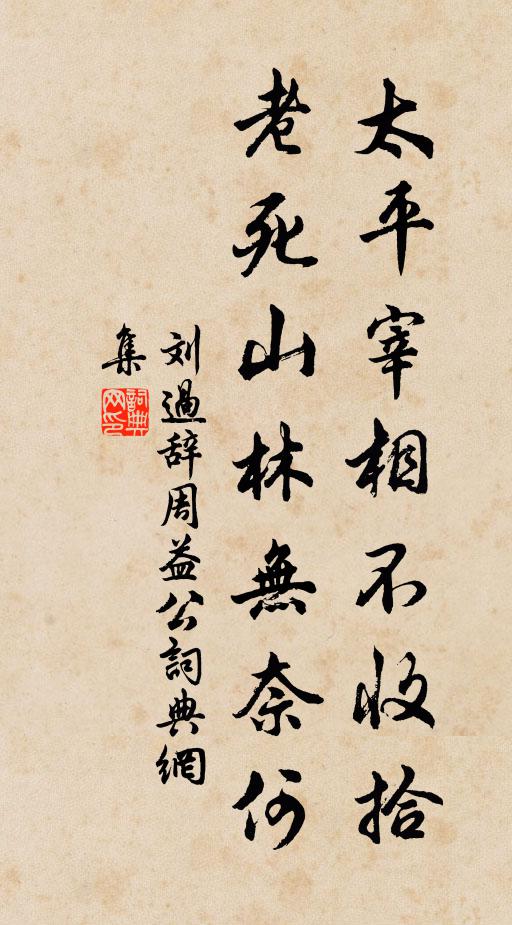 太平宰相不收拾
老死山林無奈何
刘過辞周益公詞典網
集
詞典
网印